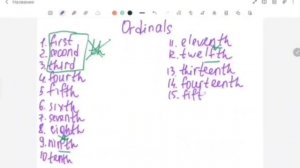 Название
Ordinals
1. first
2. second
3. third
4. fourth
5 fifth
6. sixth
7. seventh
8. eighth
9. ninth
10. tenth
11. eleventh
12. twelfth
13. thirteenth
14. fourteenth
15. fift